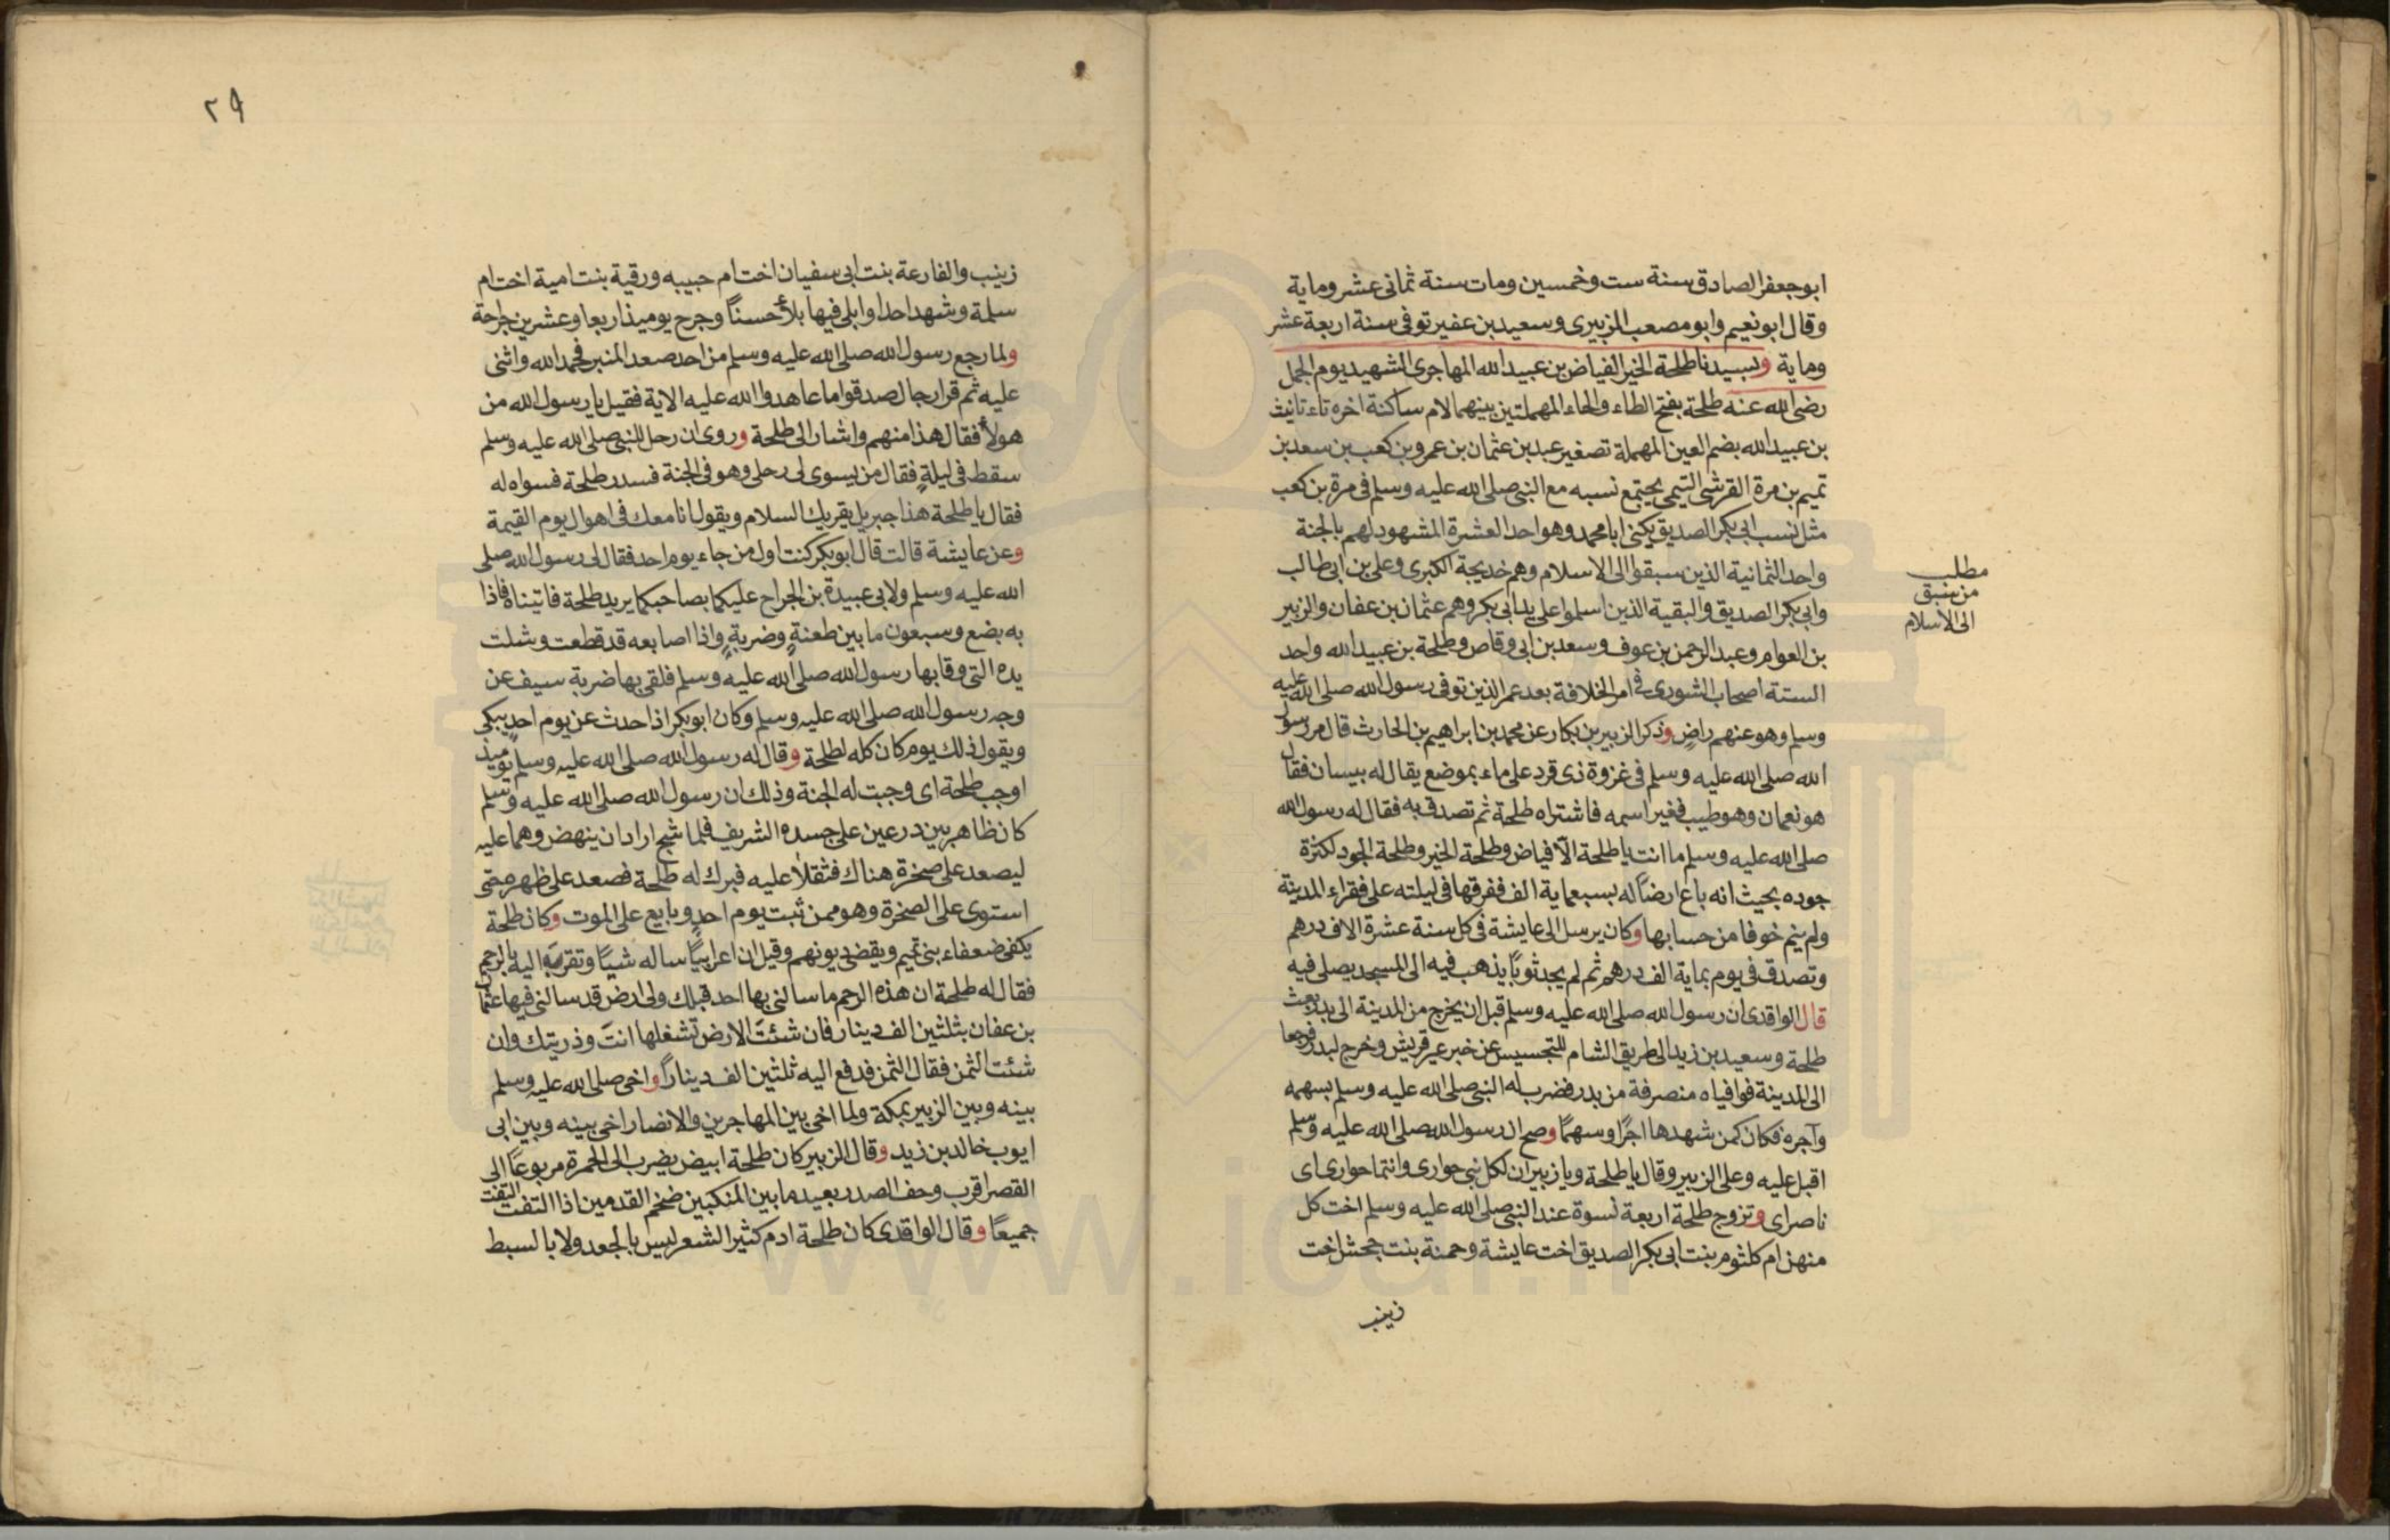 ابو جعفر الصادق سنة ست وخمسين ومات سنة ثمانى عشر وماية
وقال ابو نعيم وابو مصعب الزبيرى وسعيد بن عفير توفى سنة اربعة عشر
وماية وبسيدنا طلحة الخير الفياض بن عبيد الله المهاجرى الشهيد يوم الجمل
رضى الله عنه طلحة بفتح الطاء والحاء المهملتين بينهما لام ساكنة اخره تاء تانيث
بن عبيد الله بضم العين المهملة تصغير عبد بن عثمان بن عمرو بن كعب بن سعد بن
تميم بن مرة القرشى التيمى يجتمع نسبه مع النبى صلى الله عليه وسلم فى مرة بن كعب
مثل نسب ابى بكر الصديق يكنى ابا محمد وهو احد العشرة المشهود لهم بالجنة
واحد الثمانية الذين سبقوا الى الاسلام وهم خديجة الكبرى وعلى بن ابى طالب
وابى بكر الصديق والبقية الذين اسلموا على يد ابى بكر وهم عثمان بن عفان والزبير
بن العوام وعبد الرحمن بن عوف وسعد بن ابى وقاص وطلحة بن عبيد الله واحد
الستة اصحاب الشورى فى امر الخلافة بعد عمر الذين توفى رسول الله صلى الله عليه
وسلم وهو عنهم راض وذكر الزبير بن بكار عن محمد بن ابراهيم بن الحارث قال مر رسول
الله صلى الله عليه وسلم فى غزوة ذى قرد على ماء بموضع يقال له بيسان فقال
هو نعمان وهو طيب فغير اسمه فاشتراه طلحة ثم تصدق به فقال له رسول الله
صلى الله عليه وسلم ما انت يا طلحة الا فياض وطلحة الخير وطلحة الجود لكثرة
جوده بحيث انه باع ارضا له بسبعماية الف ففرقها فى ليلته على فقراء المدينة
ولم ينم خوفا من حسابها وكان يرسل الى عايشة فى كل سنة عشرة الاف درهم
وتصدق فى يوم بماية الف درهم ثم لم يجد ثوبا يذهب فيه الى المسجد يصلى فيه
قال الواقدى ان رسول الله صلى الله عليه وسلم قبل ان يخرج من المدينة الى بدر بعث
طلحة وسعيد بن زيد الى طريق الشام للتجسيس عن خبر عير قريش وخرج لبدر فرجعا
الى المدينة فوافياه منصرفة من بدر فضرب له النبى صلى الله عليه وسلم بسهمه
وآجره فكان كمن شهدها اجرا وسهما وصح ان رسول الله صلى الله عليه وسلم
اقبل عليه وعلى الزبير وقال يا طلحة ويا زبير ان لكل نبى حوارى وانتما حوارى اى
ناصراى وتزوج طلحة اربعة نسوة عند النبى صلى الله عليه وسلم اخت كل
منهن ام كلثوم بنت ابى بكر الصديق اخت عايشة وحمنة بنت جحش اخت
زينب
مطلب
من سبق
الى الاسلام
٢٩
زينب والفارعة بنت ابى سفيان اخت ام حبيبه ورقية بنت امية اخت ام
سلمة وشهد احدا وابلى فيها بلأ حسنا وجرح يوميذ اربعا وعشرين جراحة
ولما رجع رسول الله صلى الله عليه وسلم من احد صعد المنبر فحمد الله واثنى
عليه ثم قرا رجال صدقوا ما عاهدوا الله عليه الاية فقيل يا رسول الله من
هولأ فقال هذا منهم واشار الى طلحة وروى ان رحل النبى صلى الله عليه وسلم
سقط فى ليلة فقال من يسوى لى رحلى وهو فى الجنة فسدر طلحة فسواه له
فقال يا طلحة هذا جبريل يقريك السلام ويقول انا معك فى اهوال يوم القيمة
وعن عايشة قالت قال ابو بكر كنت اول من جاء يوم احد فقال لى رسول الله صلى
الله عليه وسلم ولابى عبيدة بن الجراح عليكما بصاحبكما يريد طلحة فاتيناه فاذا
به بضع وسبعون ما بين طعنة وضربة واذا اصابعه قد قطعت وشلت
يده التى وقا بها رسول الله صلى الله عليه وسلم فلقى بها ضربة سيف عن
وجه رسول الله صلى الله عليه وسلم وكان ابو بكر اذا حدث عن يوم احد يبكى
ويقول ذلك يوم كان كله لطلحة وقال له رسول الله صلى الله عليه وسلم يوميذ
اوجب طلحة اى وجبت له الجنة وذلك ان رسول الله صلى الله عليه وسلم
كان ظاهر بين درعين على جسده الشريف فلما شج اراد ان ينهض وهما عليه
ليصعد على صخرة هناك فثقلا عليه فبرك له طلحة فصعد على ظهره حتى
استوى على الصخرة وهو ممن ثبت يوم احد وبايع على الموت وكان طلحة
يكفى ضعفاء بنى تميم ويقضى ديونهم وقيل ان اعرابيا ساله شيا وتقرب اليه بالرحم
فقال له طلحة ان هذه الرحم ما سالنى بها احد قبلك ولى ارض قد سالنى فيها عثمان
بن عفان بثلثين الف دينار فان شئت الارض تشغلها انت وذريتك وان
شئت الثمن فقال الثمن فدفع اليه ثلثين الف دينارا واخى صلى الله عليه وسلم
بينه وبين الزبير بمكة ولما اخى بين المهاجرين والانصار اخى بينه وبين ابى
ايوب خالد بن زيد وقال الزبير كان طلحة ابيض يضرب الى الحمرة مربوعا الى
القصر اقرب وحف الصدر بعيد ما بين المنكبين ضخم القدمين اذا التفت التفت
جميعا وقال الواقدى كان طلحة ادم كثير الشعر ليس بالجعد ولا بالسبط